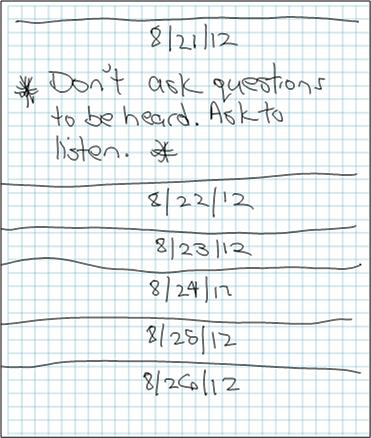 8/21/12
* Don't ask questions
to be heard. Ask to
listen. *
8/22/12
8/23/12
8/24/12
8/25/12
8/26/12